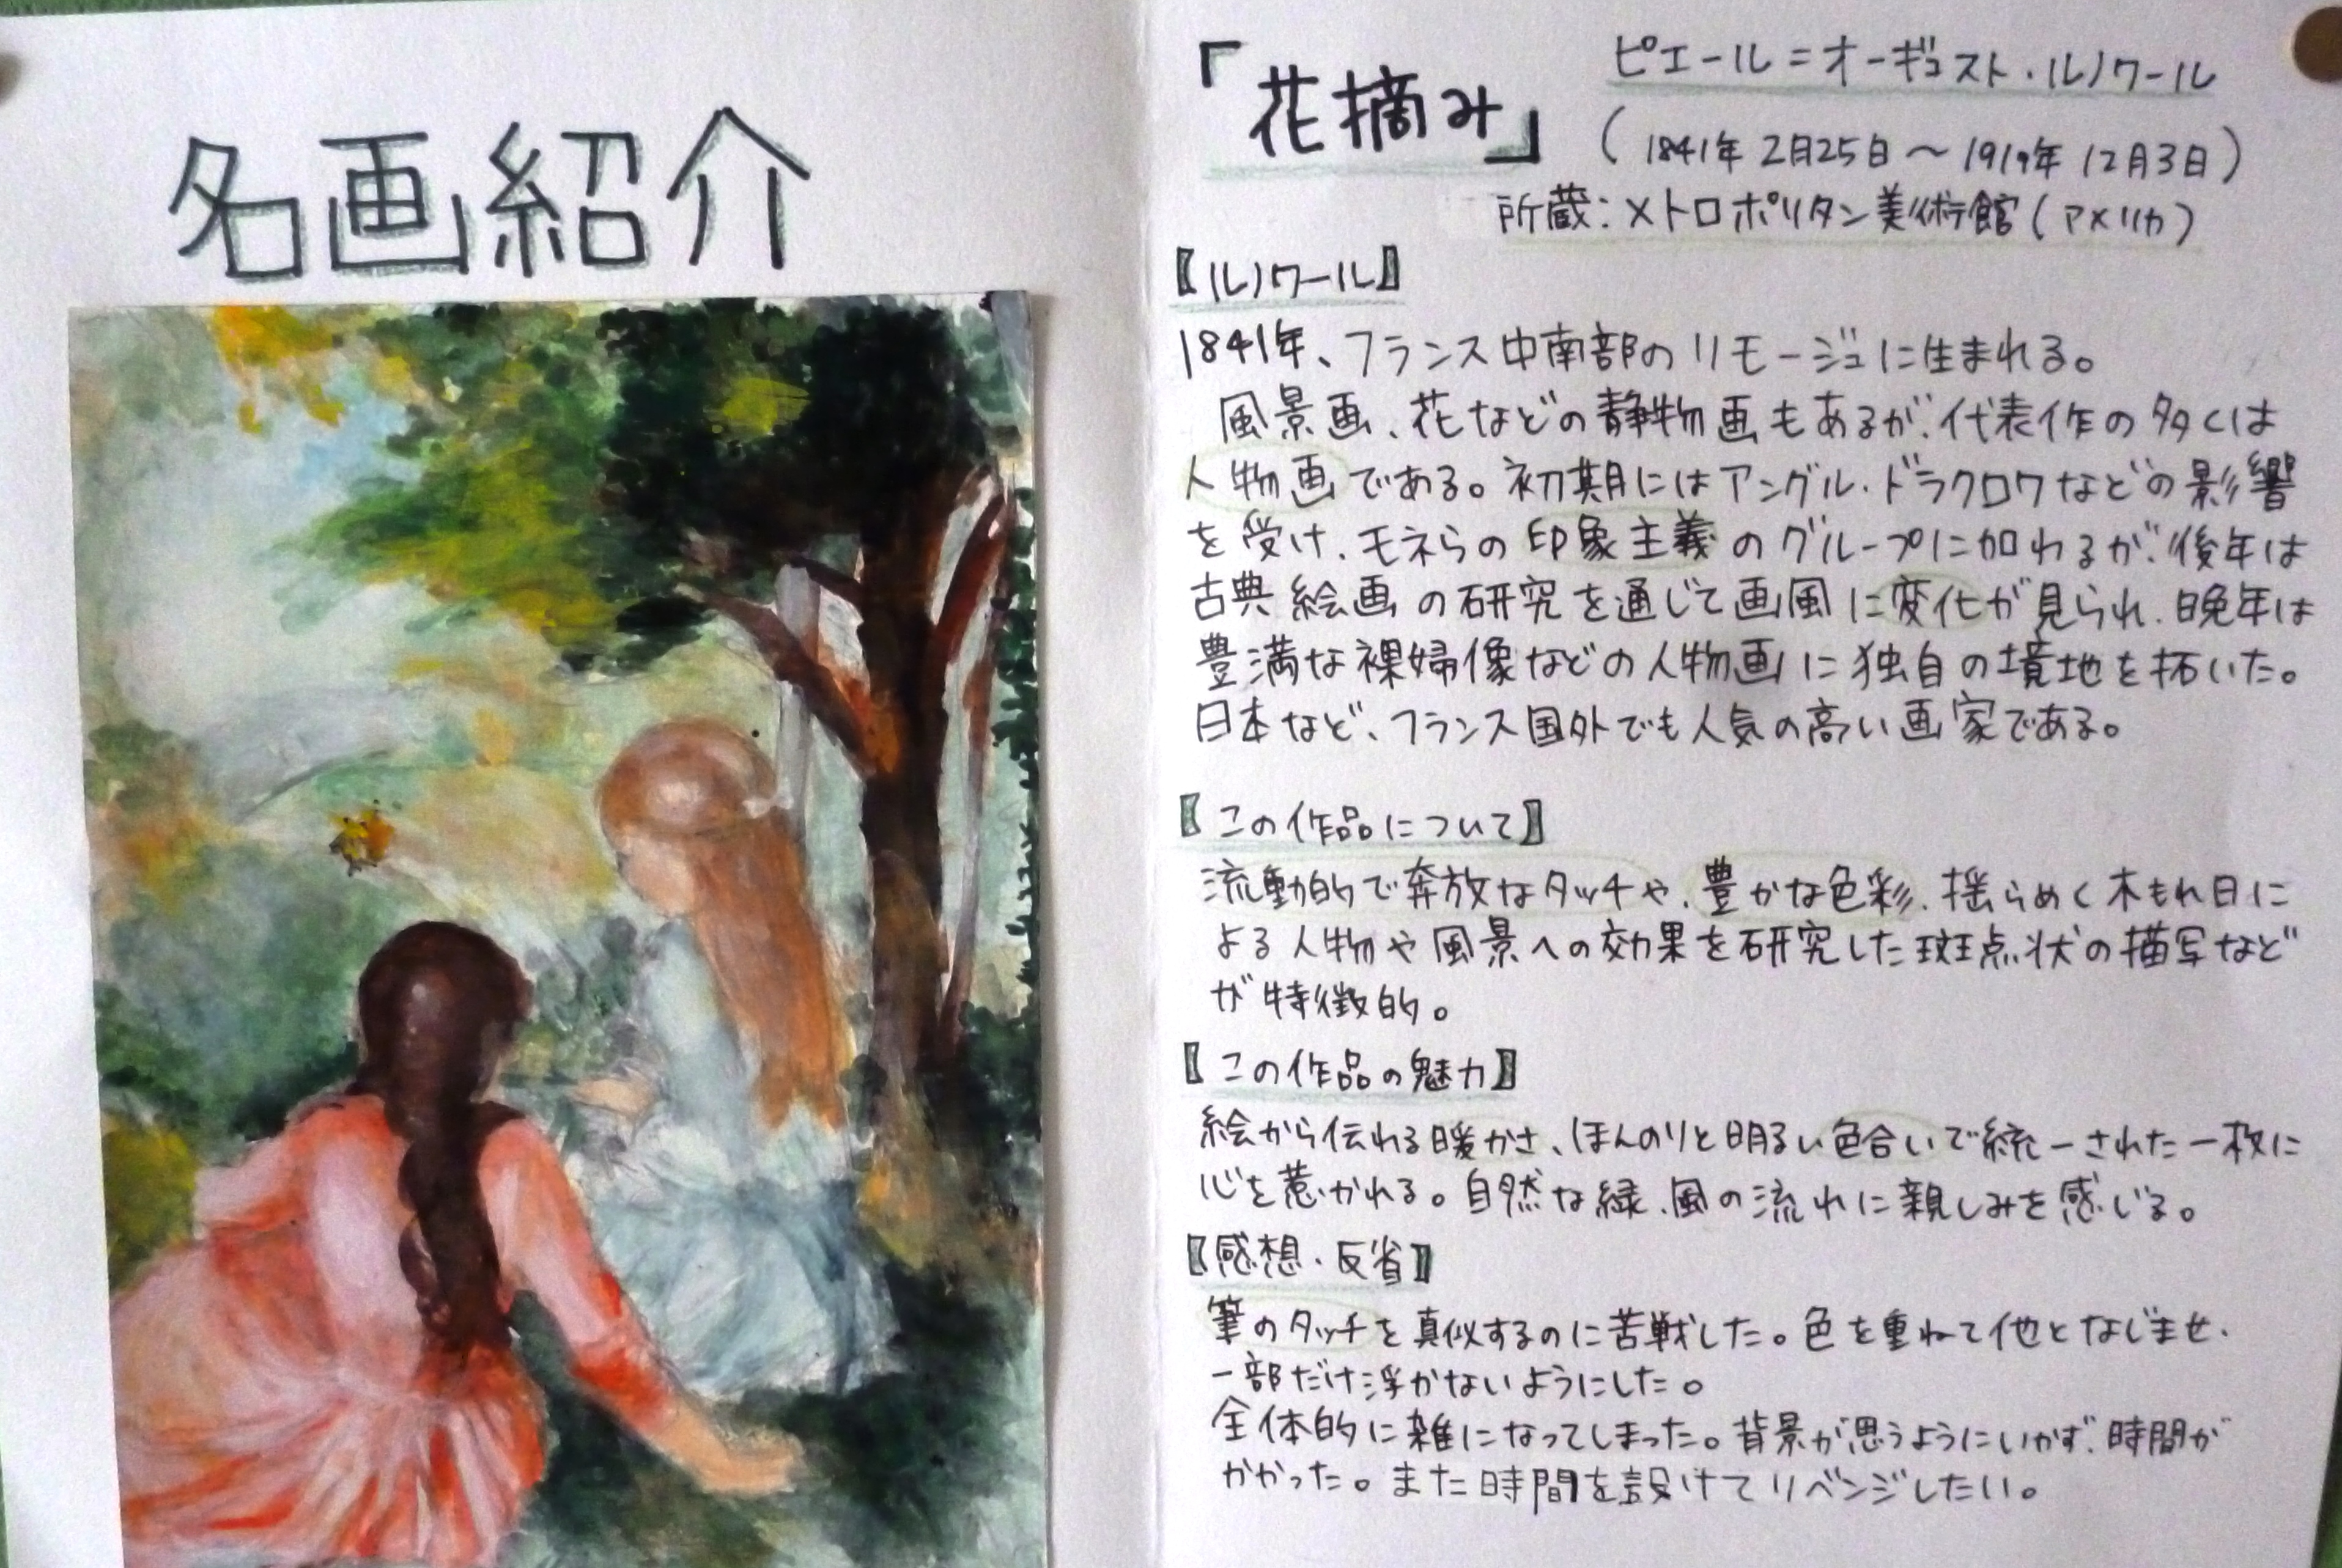 名画紹介
「花摘み」
ピエール=オーギュスト・ルノワール
(1841年2月25日〜1919年12月3日)
所蔵:メトロポリタン美術館(アメリカ)
【ルノワール】
1841年、フランス中南部のリモージュに生まれる。
風景画、花などの静物画もあるが、代表作の多くは
人物画である。初期にはアングル・ドラクロワなどの影響
を受け、モネらの印象主義のグループに加わるが、後年は
古典絵画の研究を通じて画風に変化が見られ、晩年は
豊満な裸婦像などの人物画に独自の境地を拓いた。
日本など、フランス国外でも人気の高い画家である。
【この作品について】
流動的で奔放なタッチや、豊かな色彩、揺らめく木もれ日に
よる人物や風景への効果を研究した斑点状の描写など
が特徴的。
【この作品の魅力】
絵から伝わる暖かさ、ほんのりと明るい色合いで統一された一枚に
心を惹かれる。自然な緑、風の流れに親しみを感じる。
【感想・反省】
筆のタッチを真似するのに苦戦した。色を重ねて他となじませ、
一部だけ浮かないようにした。
全体的に雑になってしまった。背景が思うようにいかず、時間が
かかった。また時間を設けてリベンジしたい。